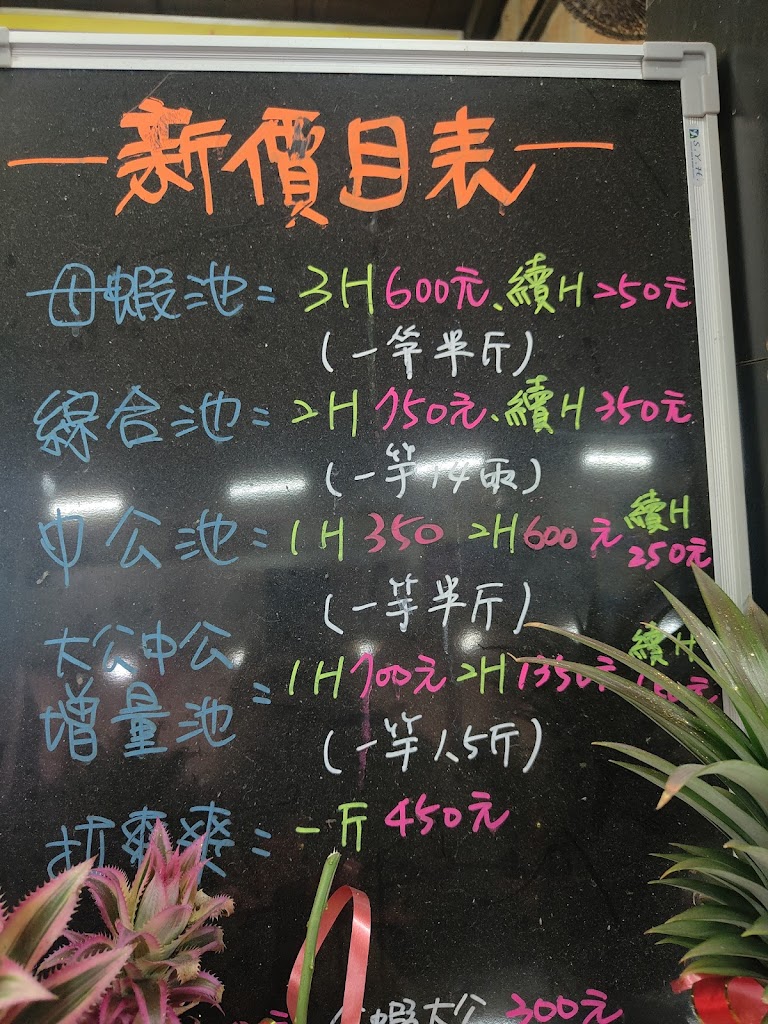 新價目表
母蝦池= 3H 600元、續H 250元
(一竿半斤)
綜合池= 2H 750元、續H 350元
(一竿14兩)
中公池= 1H 350 2H 600元 續H 250元
(一竿半斤)
大公中公
增量池= 1H 700元 2H 1350元 續H
(一竿1.5斤)
折爽爽= 一斤 450元
蝦大公 300元